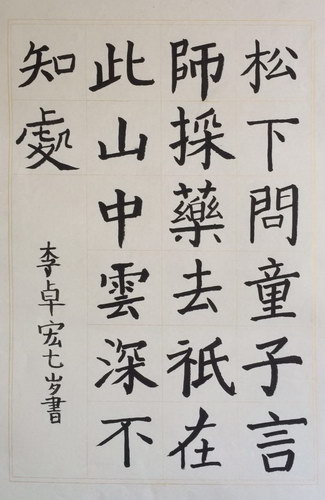 松下問童子言
師採藥去祇在
此山中雲深不
知處
李卓宏七岁書